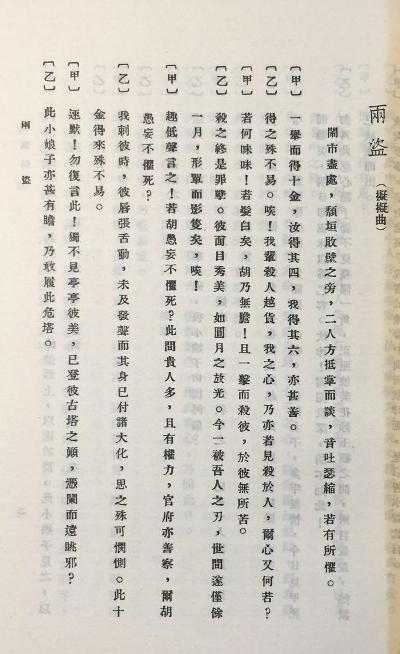 兩盜（擬擬曲）
鬧市盡處，頹垣敗壁之旁，二人方抵掌而談，音吐瑟縮，若有所懼。
〔甲〕一舉而得十金，汝得其四，我得其六，亦甚善。
〔乙〕得之殊不易。唉！我輩殺人越貨，我之心，乃亦若見殺於人，爾心又何若？
〔甲〕若何昧昧！若髮白矣，胡乃無膽！且一擊而殺彼，於彼無所苦。
〔乙〕殺之終是罪孽。彼面目秀美，如圓月之放光。今一被吾人之刃，世間遂僅餘
一月，形單而影隻矣，唉！
〔甲〕趣低聲言之！若胡愚妄不懼死？此間貴人多，且有權力，官府亦善察，爾胡
愚妄不懼死？
〔乙〕我刺彼時，彼唇張舌動，未及發聲而其身已付諸大化，思之殊可憫惻。此十
金得來殊不易。
〔甲〕速默！勿復言此！獨不見亭亭彼美，已登彼古塔之顛，憑闌而遠眺邪？
〔乙〕此小娘子亦甚有膽，乃敢履此危塔。
兩盜